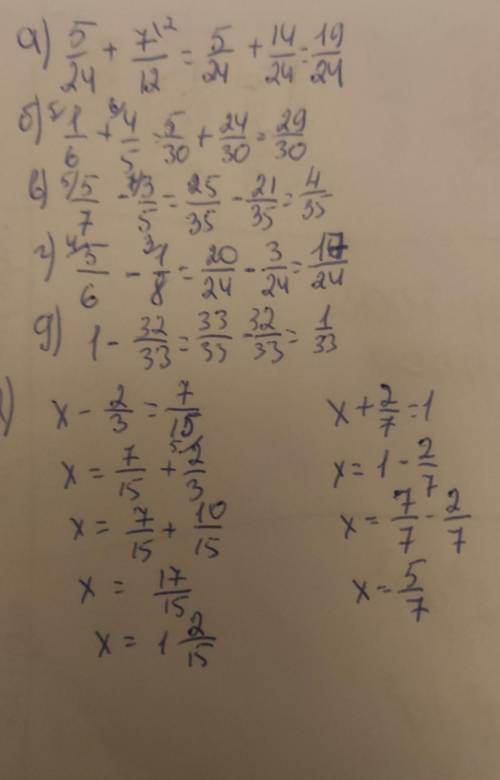 а) 5/24 + 7\2/12 = 5/24 + 14/24 = 19/24
б) 5/1/6 + 6/4/5 = 5/30 + 24/30 = 29/30
в) 5/5/7 - 7/3/5 = 25/35 - 21/35 = 4/35
г) 4/5/6 - 3/1/8 = 20/24 - 3/24 = 17/24
д) 1 - 32/33 = 33/33 - 32/33 = 1/33
x - 2/3 = 7/15
x = 7/15 + 5/2/3
x = 7/15 + 10/15
x = 17/15
x = 1 2/15
x + 2/7 = 1
x = 1 - 2/7
x = 7/7 - 2/7
x = 5/7